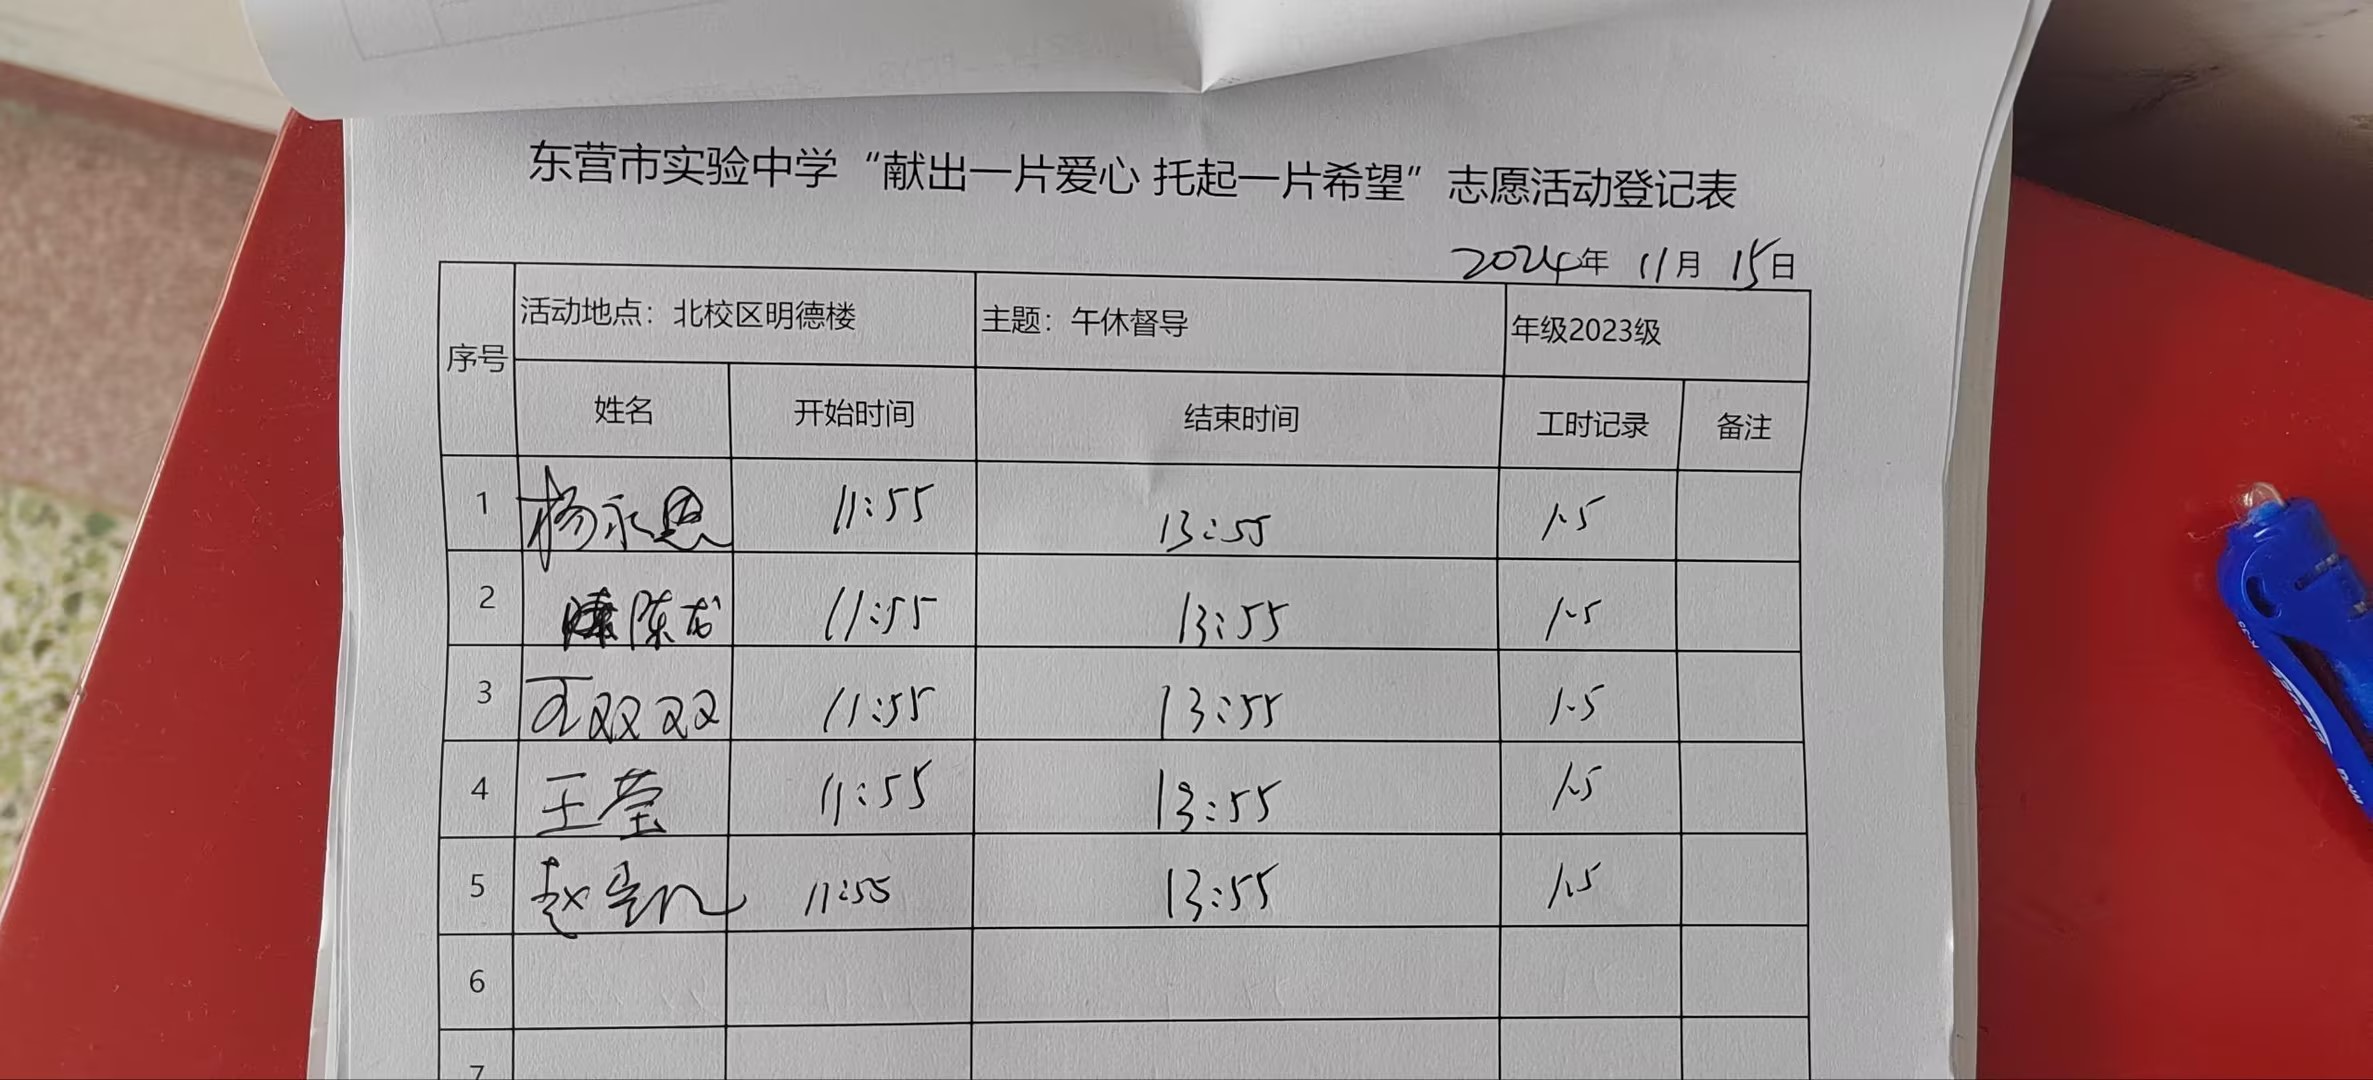 东营市实验中学“献出一片爱心 托起一片希望”志愿活动登记表
2024年 11月 15日
序号 活动地点：北校区明德楼 主题：午休督导 年级2023级
姓名 开始时间 结束时间 工时记录 备注
1 杨永恩 11:55 13:55 1.5
2 陈龙 11:55 13:55 1.5
3 王双双 11:55 13:55 1.5
4 王莹 11:55 13:55 1.5
5 赵 11:55 13:55 1.5
6
7